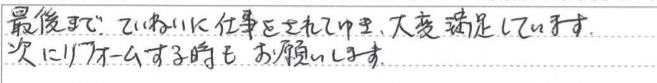 最後まで ていねいに仕事をされてゆき、大変満足しています.
次にリフォームする時も お願いします.